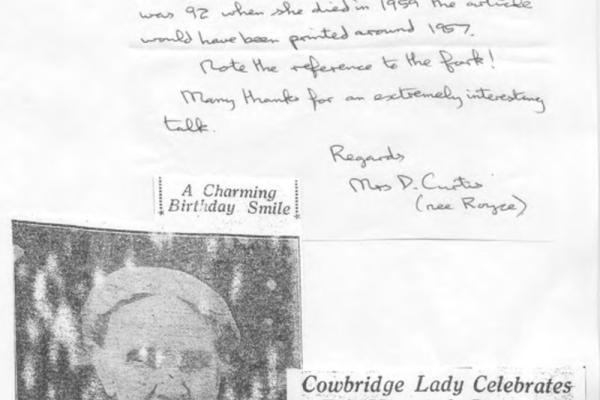 was 92 when she died in 1959 the article
would have been printed around 1957.
Note the reference to the fork!
Many thanks for an extremely interesting
talk.
Regards
Mrs D. Curtis
(nee Royce)
A Charming
Birthday Smile
Cowbridge Lady Celebrates